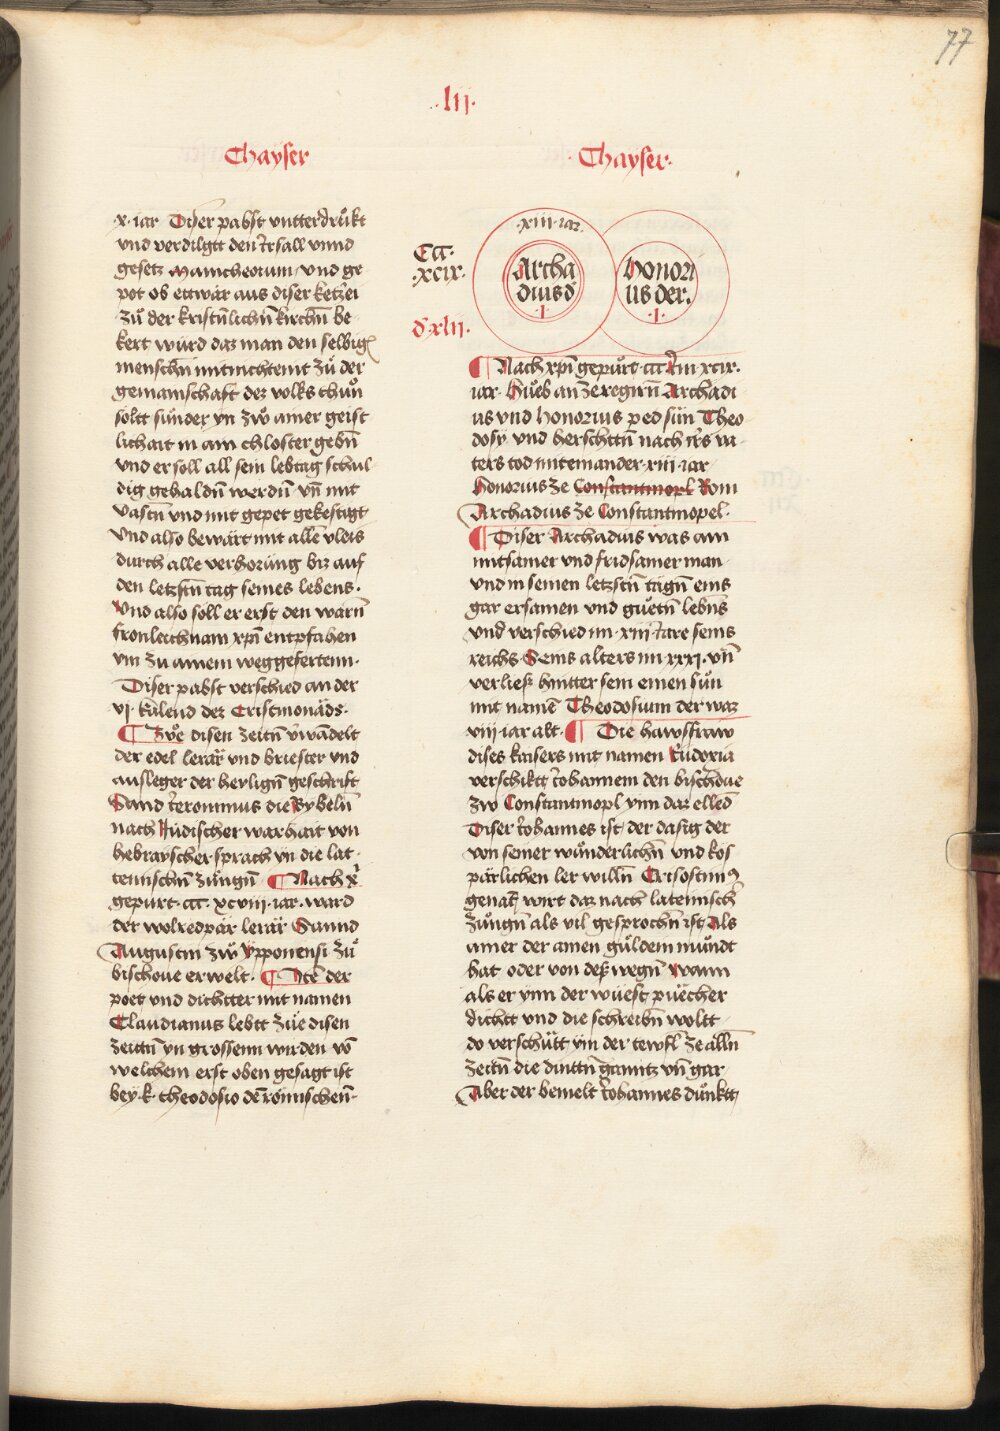 77
·lii·
Chayser
·Chayser·
x·iar Diser pabst vntterdrůkt
vnd verdilgtt den irsall vnnd
gesetz Maincheorum·vnd ge
pot ob ettwar aus diser ketzei
zů der kristnlichñ kirchñ be
kert wurd daz man den selbigē
menschñ mitnichtemt zů der
gemainschaft dez volks thuň
soltt sunder yn zwo ainer geist
lichait in ain chloster gebñ
vnd er soll all sein lebtag schul
dig gehaldñ werdñ vñ mit
vastñ vnd mit gepet gekestigt
Vnd also bewart mit allē vleis
durch alle verhorung biz auf
den letzstñ tag seines lebens·
Vnd also soll er erst den warñ
fronleichnam xpī entpfahen
vm zu ainem weggefertenn·
Diser pabst verschied an der
vi·kalend dez Cristmonäds·
¶ Zwe disen zeitñ vwādelt
der edel lerär vnd briester vnd
ausleger der heyligñ geschrift
Sand Ieronimus die Bybelñ
nach Iudischer warhait von
hebrayscher sprach yn die lat
teinischñ zungñ ¶ Nach x̄
gepurt·ccc·xcviii·iar·ward
der wolredpär lerär Sannd
Augustin zwů Ypponensi zů
bischoue erwelt·¶ Itē der
poet vnd dichtter mit namen
Claudianus lebtt zue disen
zeittñ yn grossenn wirden vō
welchem erst oben gesagt ist
bey·k·theodosio dē römischeñ·
·xiii·iar·
Ccc·
·xcix·
Archa
dius d̄
·I·
honori
us der·
·I·
d̄·xlii·
¶ Nach xpī gepůrt·ccc·Im xcix·
iar·Hueb an ze regirñ Archadi
us vnd Honorius ped sün Theo
dosy vnd herschttñ nach irs va
ters tod miteinander·xiii·iar·
Honorius ze Constantinopl Rom
Archadius ze Constantinopel·
¶ Diser Archadius was ain
mitsamer vnd fridsamer man·
vnd in seinen letzstñ tägñ eins
gar ersamen vnd guetñ lebñs
vnd verschied im·xiii·Iare seins
reichs·Seins alters im xxxi·vñ
verließ hintter sein einen sůn
mit namē Theodosium der waz
viii·iar alt·¶ Die hawsfraw
dises kaisers mit namen Eudoxia
verschiktt Iohannem den bischoue
zw Constantinopl ynn daz ellēd
Diser Iohannes ist der dasig der
von seiner wůnderlichñ vnd kos
pärlichen ler willñ Crisostimꝰ
genañt wirt daz nach lateinisch
zůngñ als vil gesprochñ ist Als
ainer der ainen guldein mundt
hat oder von deß wegñ Wann
als er ynn der wüest puecher
dichtt vnd die schreibñ woltt
do verschütt ym der tewfl ze allñ
zeitñ die dinttñ ganntz vñ gar·
Aber der bemelt Iohannes dunktt